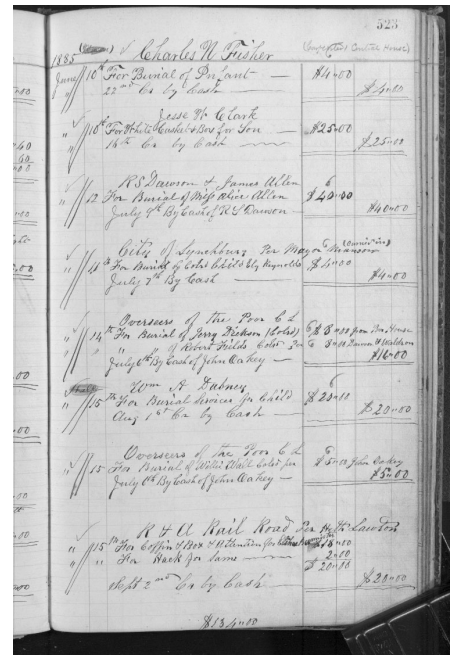 523
1885 Charles N Fisher
June 10th For Burial of Infant — $4.00
22nd Cr by Cash — $4.00
Jesse N Clark
" 10th For White Casket & Box for Son — $25.00
16th Cr by Cash $25.00
R S Dawson & James Allen
" 12 For Burial of Miss Alice Allen $40.00
July 9th By Cash of R S Dawson — $40.00
City of Lynchburg Per Mayor Manson
" For Burial of Cold Child Reynolds $4.00
July 7th By Cash — $4.00
Overseers of the Poor C C
" 14th For Burial of Jerry Dickson (Cold) $8.00 Poor House
" " of Robert Fields Cold Per 8.00
July 6th By Cash of John Oakey — $16.00
Wm A Dabney
" 15th For Burial Services for Child $20.00
Aug 1st Cr by Cash — $20.00
Overseers of the Poor C C
" 15 For Burial of Cold per $5.00 John Oakey
July 6th By Cash of John Oakey — $5.00
R & A Rail Road Per Lawton
" 15th For Coffin & Box & Attention for $18.00
" " For Hack for Same 2.00
$20.00
Sept 2nd Cr by Cash $20.00
$134.00